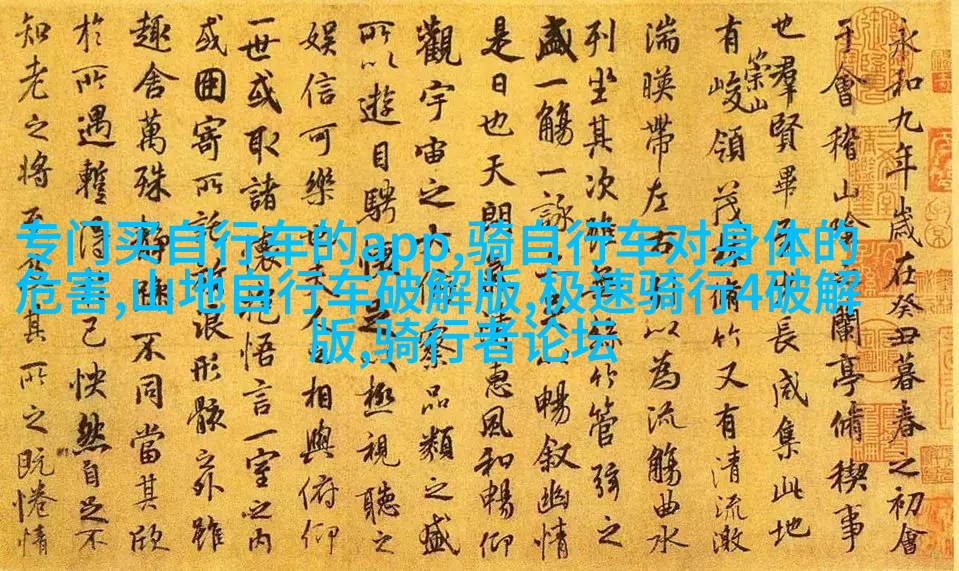 专门买自行车的app,骑自行车对身体的
危害,山地自行车破解版,极速骑行4破解
版,骑行者论坛
永和九年歲在癸丑暮春之初會
于會稽山陰之蘭亭脩稧事
也羣賢畢至少長咸集此地
有崇山峻領茂林脩竹又有清流激
湍暎帶左右引以為流觴曲水
列坐其次雖無絲竹管弦之
盛一觴一詠亦足以暢叙幽情
是日也天朗氣清惠風和暢仰
觀宇宙之大俯察品類之盛
所以遊目騁懷足以極視聽之
娛信可樂也夫人之相與俯仰
一世或取諸懷抱悟言一室之內
或因寄所託放浪形骸之外雖
趣舍萬殊靜躁不同當其欣
於所遇暫得於己怏然自足不
知老之將至及其所之既惓情